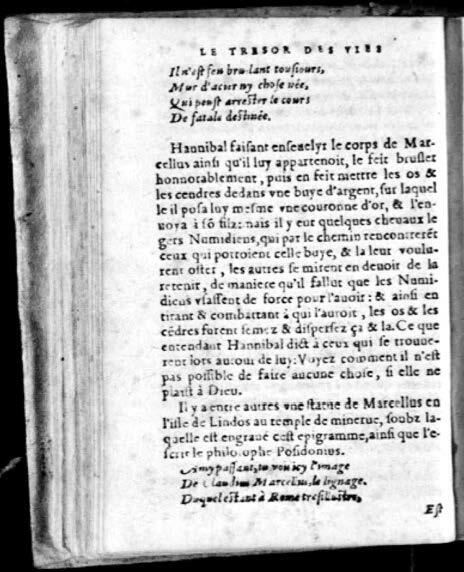 LE TRESOR DES VIES
Il n'est feu brulant tousiours,
Mur d'acier ny chose née,
Qui peust arrester le cours
De fatale destinée.
Hannibal faisant enseuelyr le corps de Mar-
cellus ainsi qu'il luy appartenoit, le feit brusler
honnorablement, puis en feit mettre les os &
les cendres dedans vne buye d'argent, sur laquel
le il posa luy mesme vne couronne d'or, & l'en-
uoya à sō filz: mais il y eut quelques cheuaux le
gers Numidiens, qui par le chemin rencontrerēt
ceux qui portoient celle buye, & la leur voulu-
rent oster, les autres se mirent en deuoir de la
retenir, de maniere qu'il fallut que les Numi-
diens vsassent de force pour l'auoir: & ainsi en
tirant & combattant à qui l'auroit, les os & les
cēdres furent semez & dispersez ça & la. Ce que
entendant Hannibal dict à ceux qui se trouue-
rent lors autour de luy: Voyez comment il n'est
pas possible de faire aucune chose, si elle ne
plaist à Dieu.
Il y a entre autres vne statue de Marcellus en
l'isle de Lindos au temple de minerue, soubz la-
quelle est engraué cest epigramme, ainsi que l'e-
scrit le philosophe Posidonius.
Amy passant, tu voy icy l'image
De Claudius Marcellus, le lignage
Duquel estant à Rome tresillustre,
Est